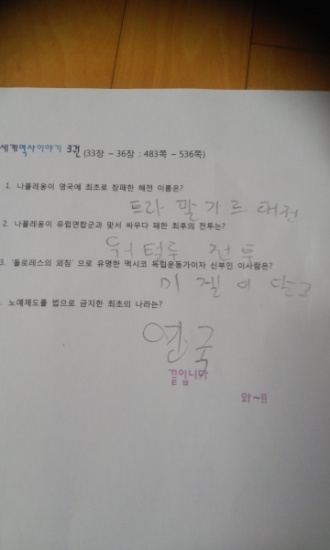 세계역사이야기 3권 (33장 – 36장 : 483쪽 – 536쪽)
1. 나폴레옹이 영국에 최초로 참패한 해전 이름은?
트라팔가르 대전
2. 나폴레옹이 유럽연합군과 맞서 싸우다 패한 최후의 전투는?
워털루 전투
3. '돌로레스의 외침' 으로 유명한 멕시코 독립운동가이자 신부인 이사람은?
미겔 이달고
. 노예제도를 법으로 금지한 최초의 나라는?
영국
끝입니다
와~!!